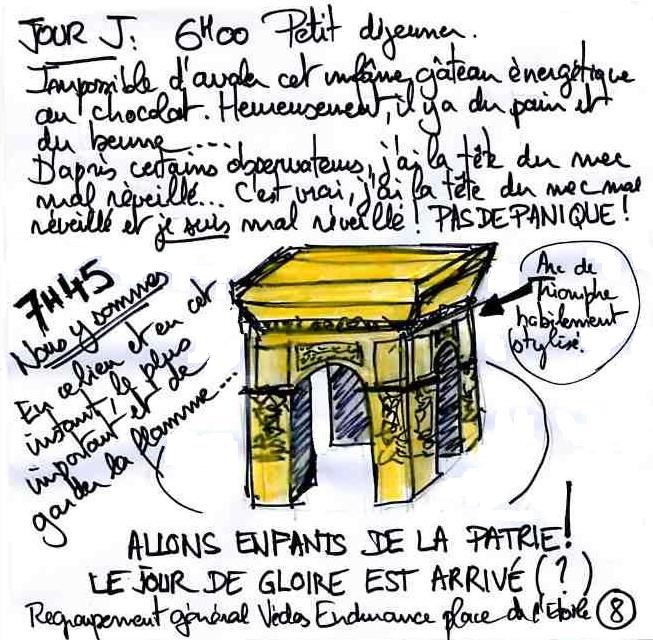 JOUR J: 6H00 Petit déjeuner.
Impossible d'avaler cet infâme gâteau énergétique
au chocolat. Heureusement, il y a du pain et
du beurre.....
D'après certains observateurs, j'ai la tête du mec
mal réveillé... C'est vrai, j'ai la tête du mec mal
réveillé et je suis mal réveillé! PAS DE PANIQUE!
7H45
Nous y sommes
En ce lieu et en cet
instant, le plus
important est de
garder la flamme...
Arc de
Triomphe
habilement
stylisé.
ALLONS ENFANTS DE LA PATRIE!
LE JOUR DE GLOIRE EST ARRIVÉ (?)
Regroupement général Védas Endurance place de l'Etoile
8